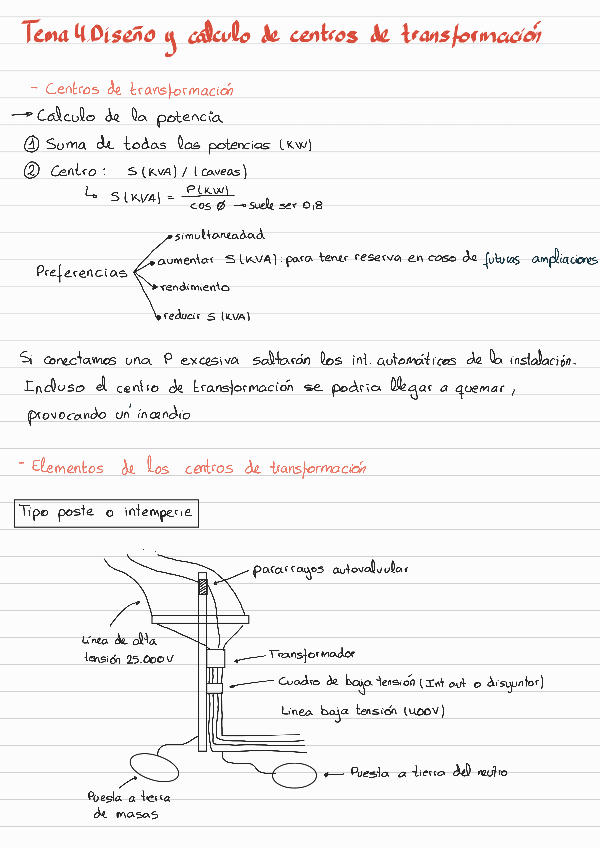 Tema 4. Diseño y cálculo de centros de transformación
- Centros de transformación
→ Cálculo de la potencia
① Suma de todas las potencias (KW)
② Centro: S(KVA) / (caveas)
↳ S(KVA) = P(KW) / cos Ø → suele ser 0,8
Preferencias
simultaneadad
aumentar S(KVA): para tener reserva en caso de futuras ampliaciones
rendimiento
reducir S(KVA)
Si conectamos una P excesiva saltarán los int. automáticos de la instalación.
Incluso el centro de transformación se podría llegar a quemar,
provocando un incendio
- Elementos de los centros de transformación
Tipo poste o intemperie
pararrayos autovalvular
Línea de alta
tensión 25.000V
Transformador
Cuadro de baja tensión (Int aut o disyuntor)
Línea baja tensión (400V)
Puesta a tierra del neutro
Puesta a tierra
de masas